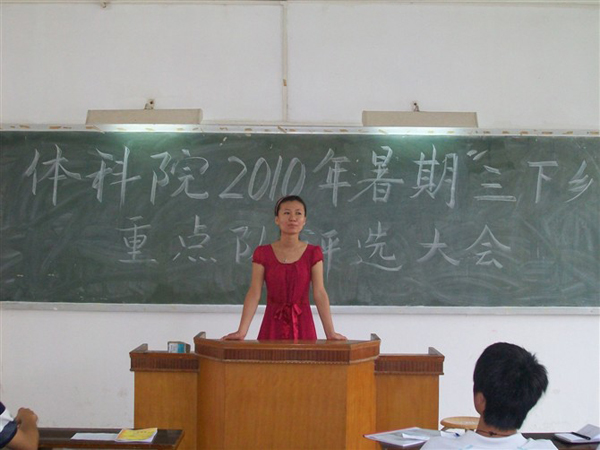 体科院2010年暑期“三下乡
重点队评选大会